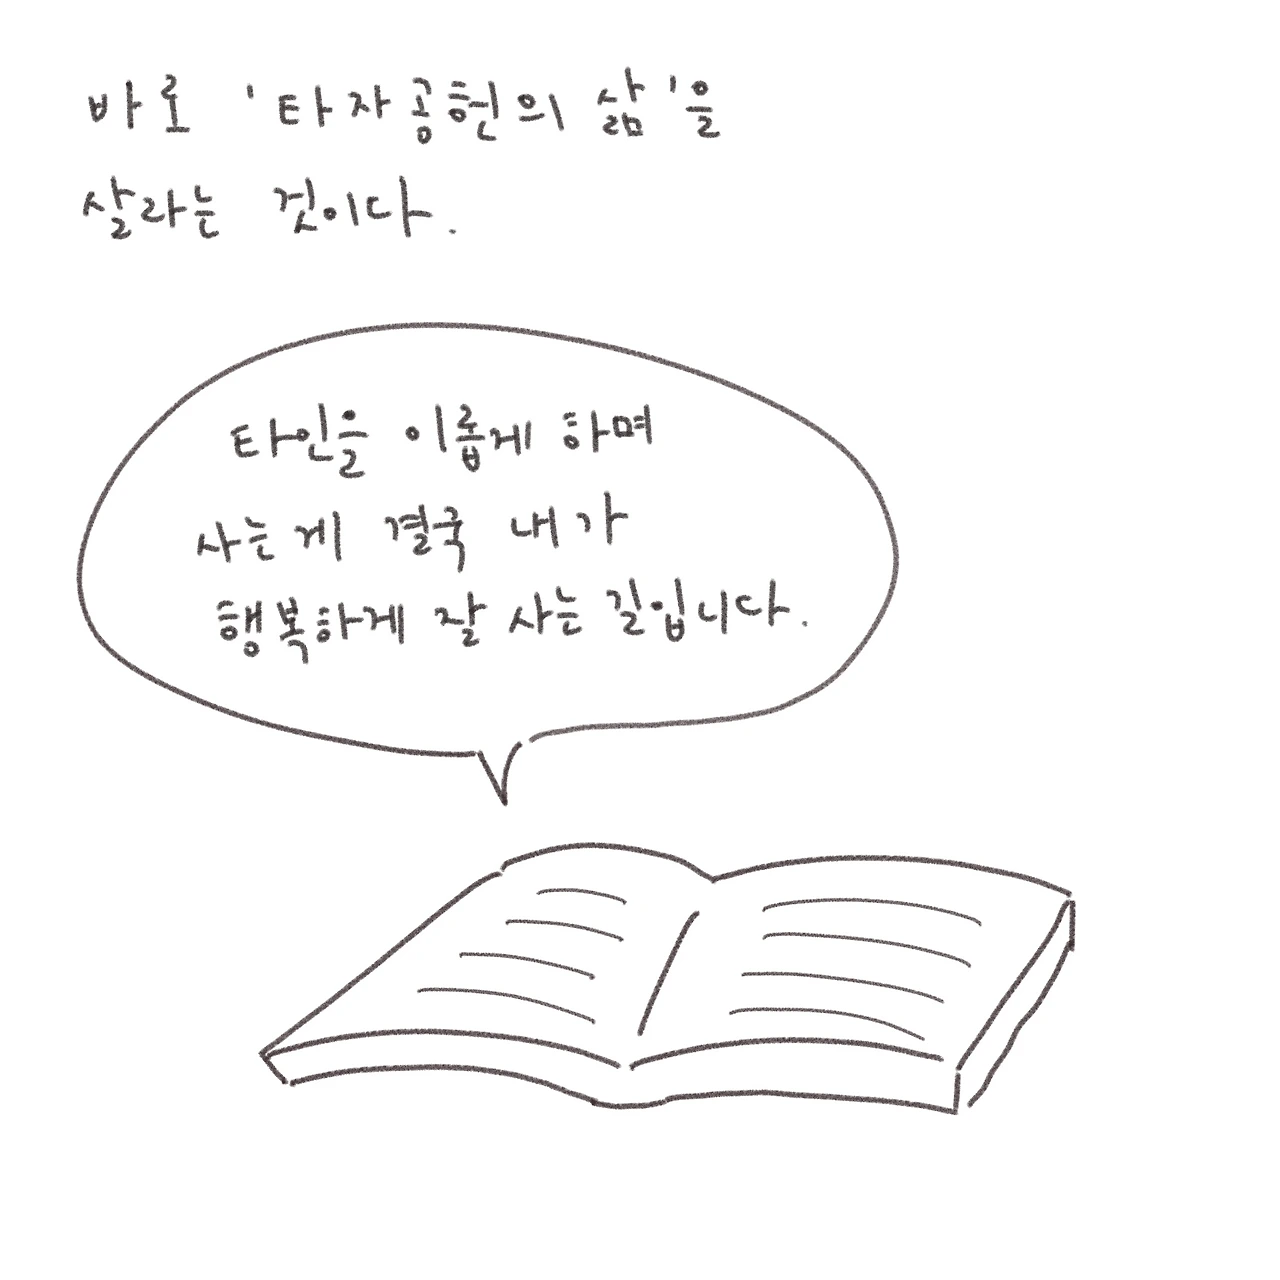 바로 '타자공헌의 삶'을
살라는 것이다.
타인을 이롭게 하며
사는게 결국 내가
행복하게 잘 사는 길입니다.